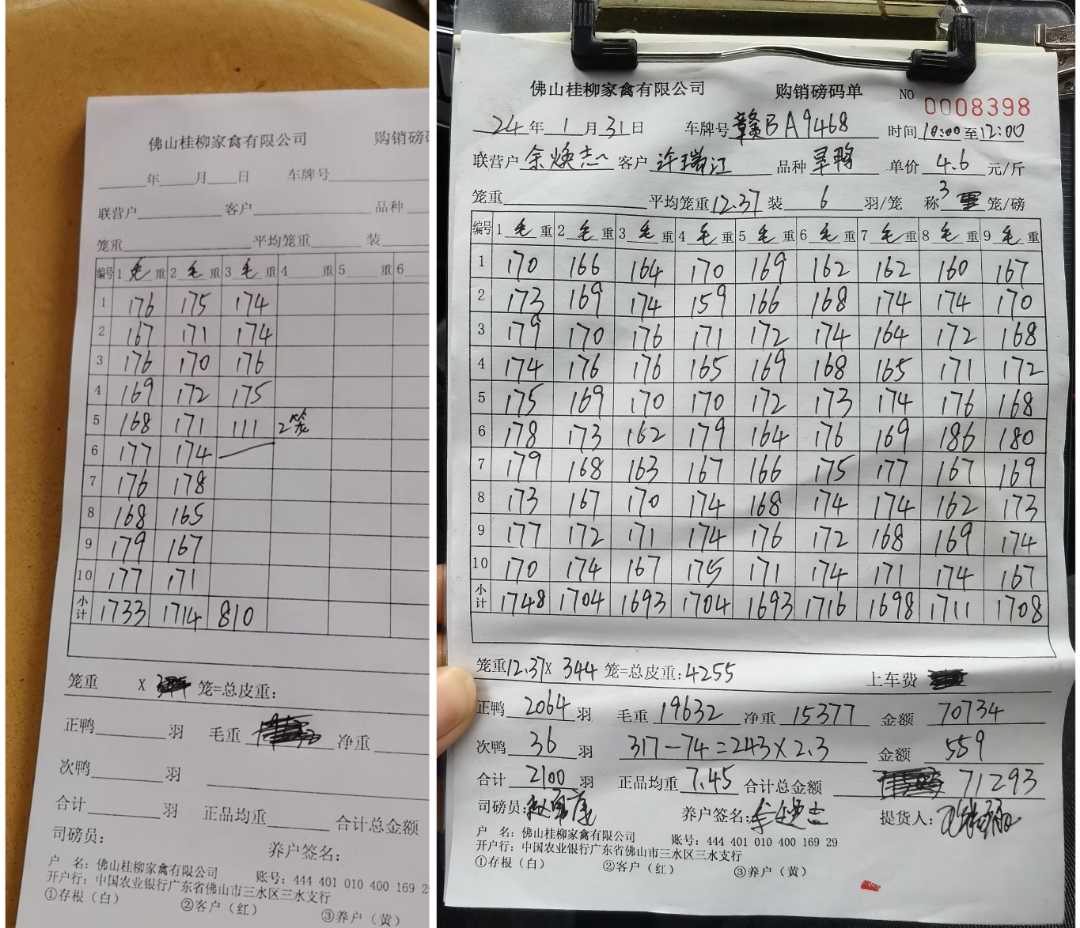 佛山桂柳家禽有限公司 购销磅码
年 月 日 车牌号
联营户 客户 品种
笼重 平均笼重 装
编号 1 毛 重 2 毛 重 3 毛 重 4 重 5 重 6
1 176 175 174
2 167 171 174
3 176 170 176
4 169 172 175
5 168 171 111 2笼
6 177 174
7 176 178
8 168 165
9 179 167
10 177 171
小计 1733 1714 810
笼重 X 笼=总皮重:
正鸭 羽 毛重 净重
次鸭 羽
合计 羽 正品均重 合计总金额
司磅员: 养户签名:
户 名: 佛山桂柳家禽有限公司 账号: 444 401 010 400 169 29
开户行: 中国农业银行广东省佛山市三水区三水支行
①存根（白） ②客户（红） ③养户（黄）
佛山桂柳家禽有限公司 购销磅码单 NO 0008398
24 年 1 月 31 日 车牌号 赣BA9468 时间 10:00 至 12:00
联营户 余焕志 客户 许瑞江 品种 单价 4.6 元/斤
笼重 平均笼重 12.37 装 6 羽/笼 称 3 笼/磅
编号 1 毛 重 2 毛 重 3 毛 重 4 毛 重 5 毛 重 6 毛 重 7 毛 重 8 毛 重 9 毛 重
1 170 166 164 170 169 162 162 160 167
2 173 169 174 159 166 168 174 174 170
3 179 170 176 171 172 174 164 172 168
4 174 176 176 165 169 168 165 171 172
5 175 169 170 170 172 173 174 176 168
6 178 173 162 179 164 176 169 186 180
7 179 168 163 167 166 175 177 167 169
8 173 167 170 174 168 174 174 162 173
9 177 172 171 174 176 172 168 169 174
10 170 174 167 175 171 174 171 174 167
小计 1748 1704 1693 1704 1693 1716 1698 1711 1708
笼重 12.37 X 344 笼=总皮重: 4255 上车费
正鸭 2064 羽 毛重 19632 净重 15377 金额 70734
次鸭 36 羽 317-74=243×2.3 金额 559
合计 2100 羽 正品均重 7.45 合计总金额 71293
司磅员: 养户签名: 余焕志 提货人:
户 名: 佛山桂柳家禽有限公司 账号: 444 401 010 400 169 29
开户行: 中国农业银行广东省佛山市三水区三水支行
①存根（白） ②客户（红） ③养户（黄）